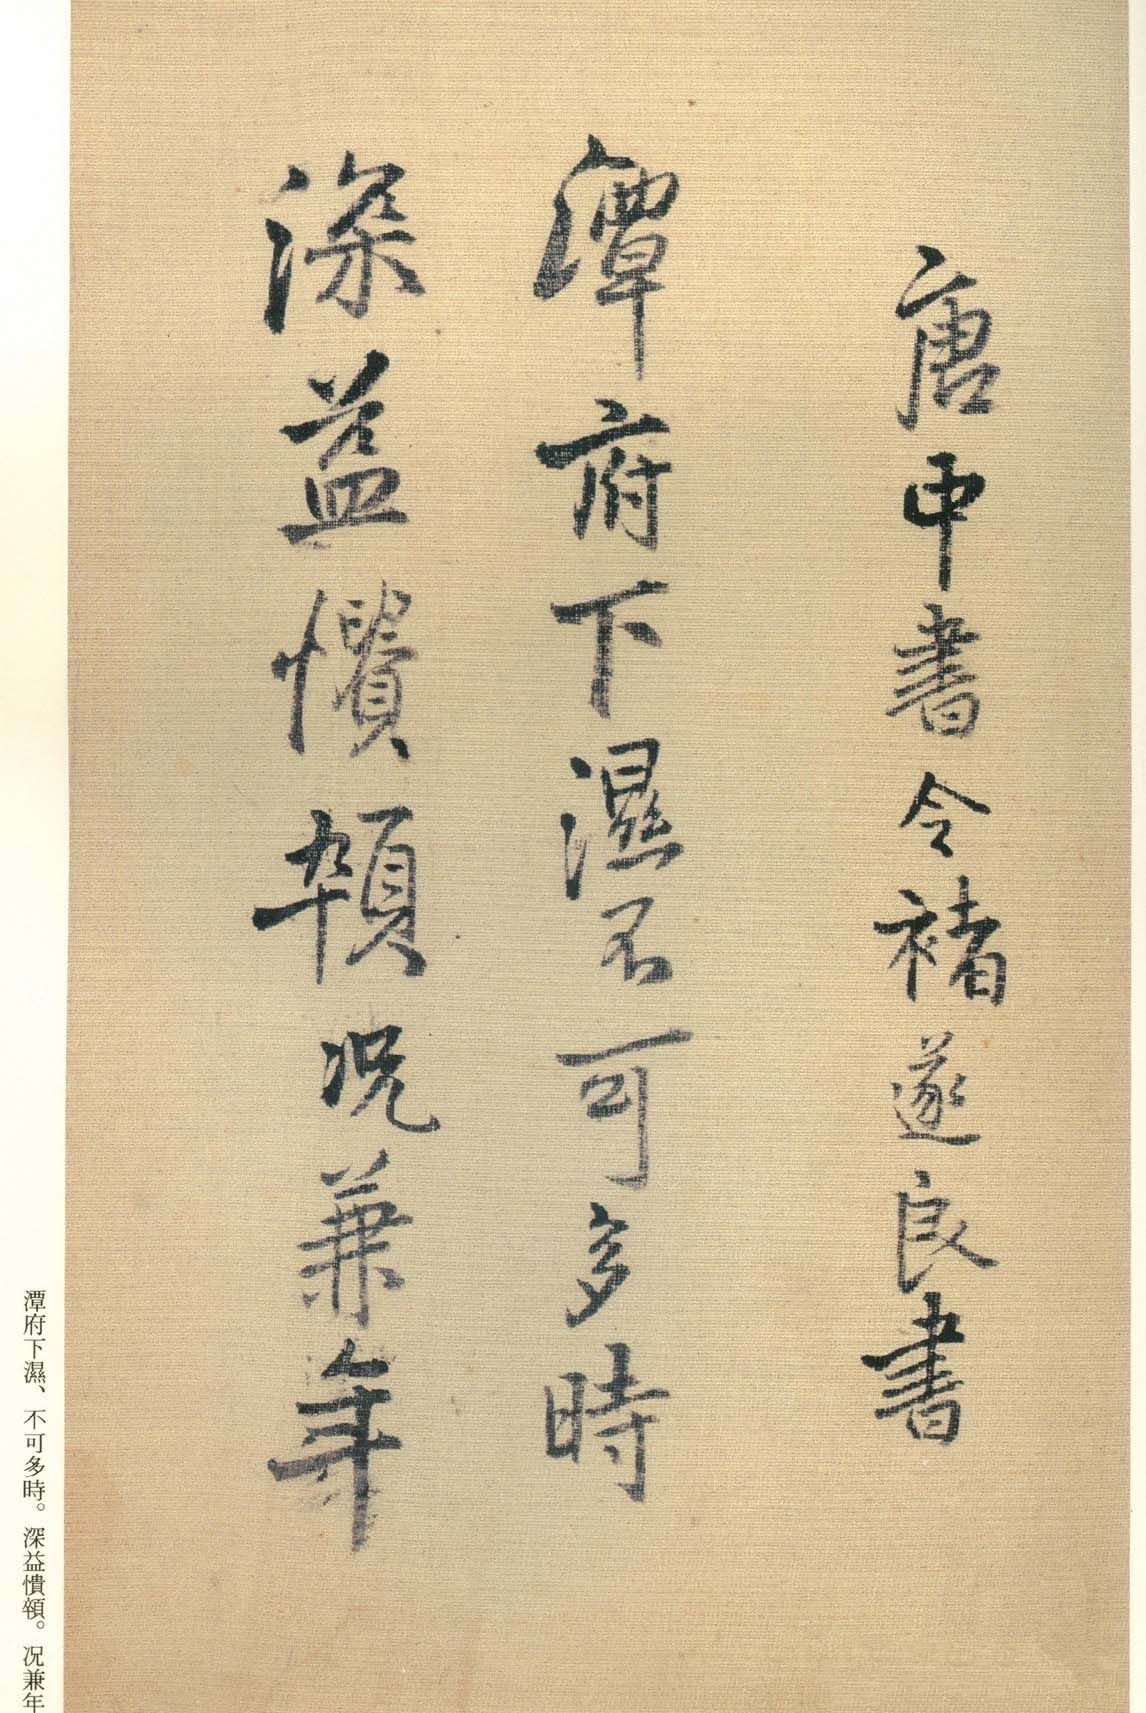 唐中書令褚遂良書
潭府下濕不可多時
深益憒顇況兼年
潭府下濕、不可多時。深益憒顇。况兼年